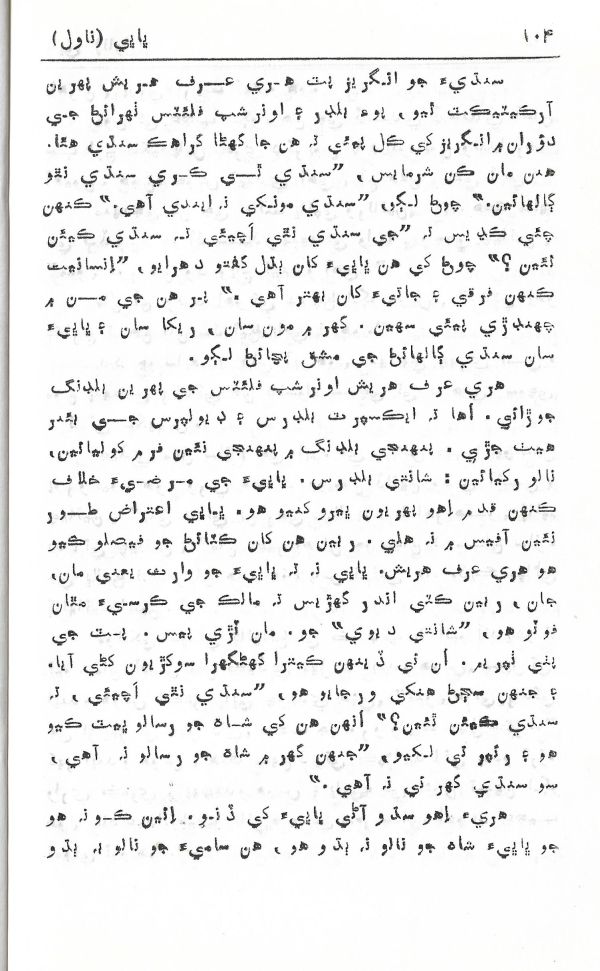 ۱۰۴ پاپي (ناول)
سنڌيءَ جو انگريز پٽ هري عرف هريش پهرين
آرڪيٽيڪٽ ٿيو، پوءِ بلڊر ۽ اونرشپ فلئٽس ٺهرائڻ جي
دؤران ۾ انگريز کي کل پيئي تہ هن جا گهڻا گراهڪ سنڌي هئا.
هنن مان ڪن شرمايس، ”سنڌي ٿي ڪري سنڌي نٿو
ڳالهائين.“ چوڻ لڳو، ”سنڌي مونکي نہ ايندي آهي.“ ڪنهن
چٿي ڪڍيس تہ ”جي سنڌي نٿي اَچيئي تہ سنڌي ڪيئن
ٿئين ؟“ چوڻ کي هن پاپيءَ کان ٻڌل گفتو دهرايو، ”اِنسانيت
ڪنهن فرقي ۽ جاتيءَ کان بهتر آهي .“ پر هن جي من ۾
چهنڊڙي پيئي سهين . گهر ۾ مون سان، ريکا سان ۽ پاپيءَ
سان سنڌي ڳالهائڻ جي مشق پچائڻ لڳو .
هري عرف هريش اونرشپ فلئٽس جي پهرين بلڊنگ
جوڙائي . اُها تہ ايڪسپرٽ بلڊرس ۽ ڊيولپرس جي ٻئنر
هيٺ جڙي . پنهنجي بلڊنگ ۾ پنهنجي نئين فرم کوليائين،
نالو رکيائين : شانتي بلڊرس . پاپيءَ جي مرضيءَ خلاف
ڪنهن قدم اِهو پهريون ڀيرو کنيو هو . پاپي اعتراض طور
نئين آفيس ۾ نہ هلي . ريبن هن کان ڪٽائڻ جو فيصلو ڪيو
هو هري عرف هريش. پاپي نہ تہ پاپيءَ جو وارث يعني مان،
جان، ريبن ڪٽي اندر گهڙيس تہ مالڪ جي ڪرسيءَ مٿان
فوٽو هو، ”شانتي ديوي“ جو . مان اُڙي پيس . پٽ جي
پٺي ٺپريم . اُن ئي ڏينهن ڪيترا گهڻگهرا سوکڙيون کڻي آيا.
۽ جنهن سڄڻ هنکي ورجايو هو، ”سنڌي نٿي اَچيئي، تہ
سنڌي ڪيئن ٿئين؟“ اُنهن هن کي شاه جو رسالو ڀيٽ ڪيو
هو ۽ رئپر تي لکيو، ”جنهن گهر ۾ شاه جو رسالو نہ آهي،
سو سنڌي گهر ئي نہ آهي .“
هريءَ اِهو سڌو آڻي پاپيءَ کي ڏنو . اِئين ڪو نہ هو
جو پاپيءَ شاه جو نالو نہ ٻڌو هو، هن ساميءَ جو نالو بہ ٻڌو